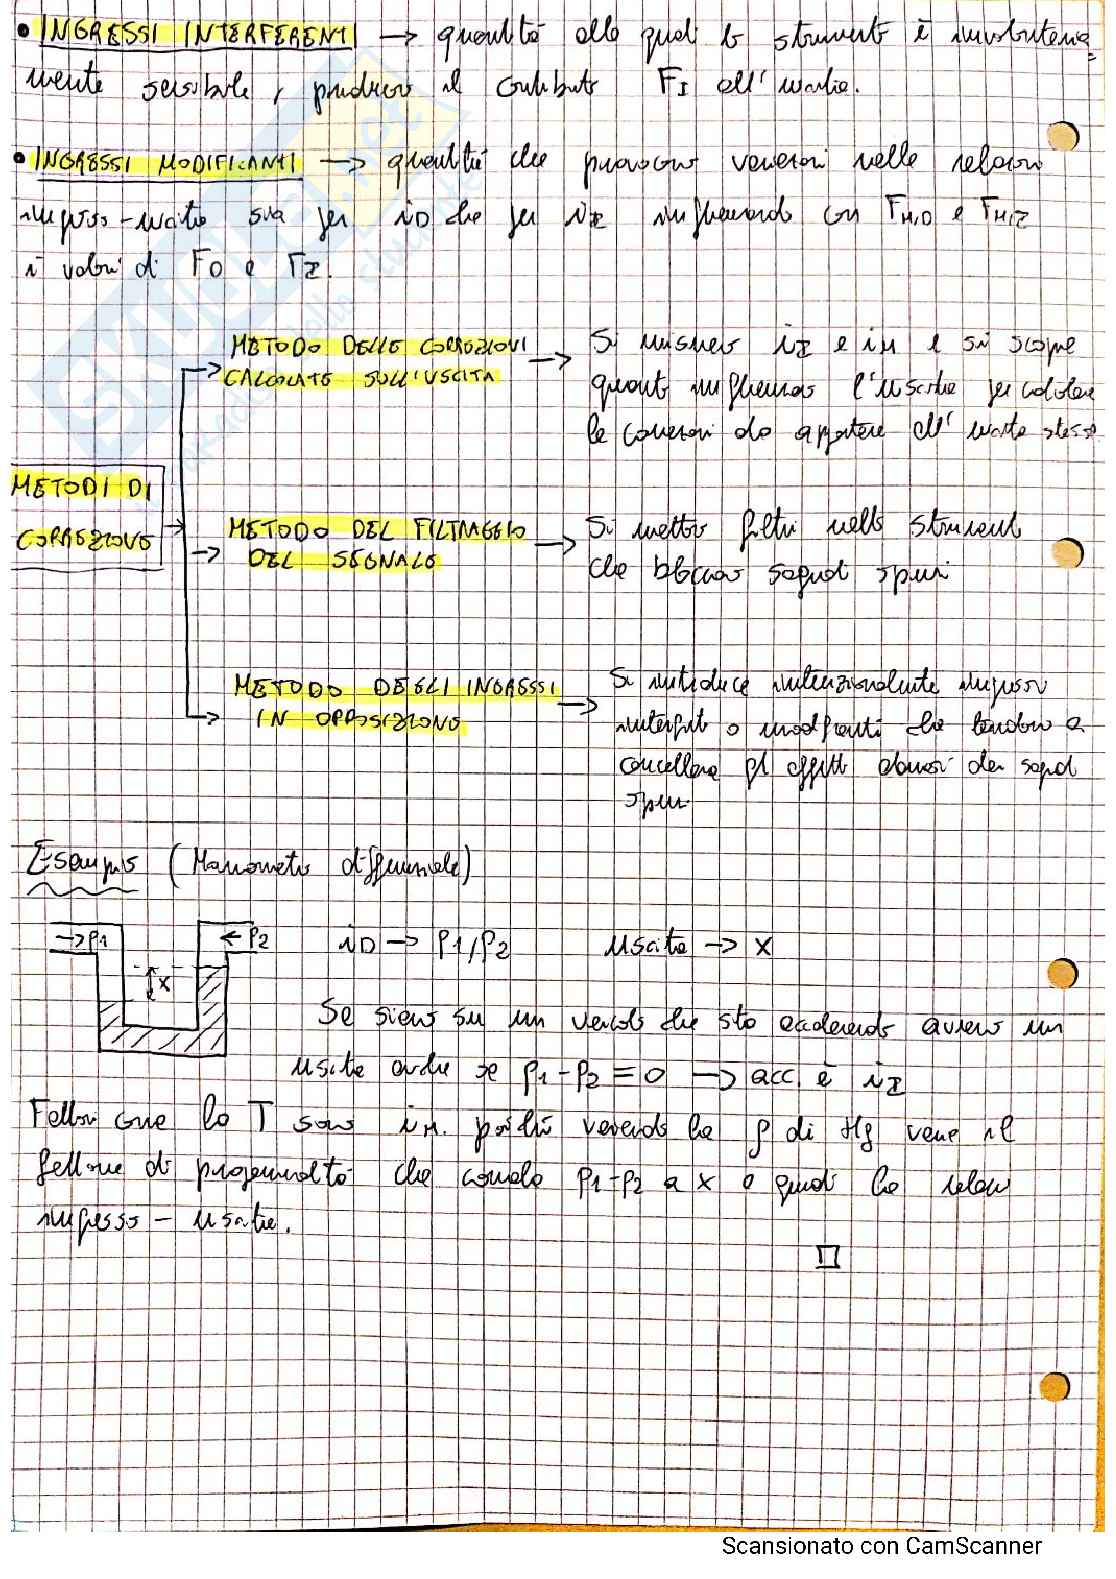 • INGRESSI INTERFERENTI → quantità alle quali lo strumento è involontaria=
mente sensibile, producono il contributo FI all'uscita.
• INGRESSI MODIFICANTI → quantità che provocano variazioni nelle relazioni
ingresso-uscita sia per iD che per iI influenzando con FM,D e FM,I
i valori di FD e FI.
METODI DI
CORREZIONE
METODO DELLE CORREZIONI
CALCOLATE SULL'USCITA
→ Si misurano iI e iM e si scopre
quanto influenzano l'uscita per calcolare
le correzioni da apportare all'uscita stessa
METODO DEL FILTRAGGIO
DEL SEGNALE
→ Si mettono filtri nello strumento
che bloccano segnali spuri
METODO DEGLI INGRESSI
IN OPPOSIZIONE
→ Si introduce intenzionalmente ingressi
interferenti o modificanti che tendono a
cancellare gli effetti dei segnali
spuri.
Esempio (Manometro differenziale)
→ P1 ← P2 x
iD → P1/P2 uscita → x
Se siamo su un veicolo che sta accelerando avremo un
uscita anche se P1-P2 = 0 → acc. è iI
Fattori come la T sono iM. poichè variando la ρ di Hg varia il
fattore di proporzionalità che correla P1-P2 a x e quindi la relazione
ingresso - uscita.
SKUOLA.net
Scansionato con CamScanner